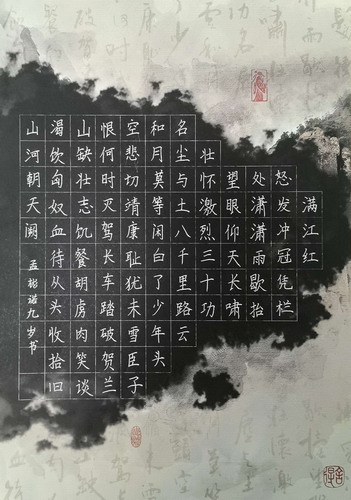 满江红
怒发冲冠凭栏
处潇潇雨歇抬
望眼仰天长啸
壮怀激烈三十功
名尘与土八千里路云
和月莫等闲白了少年头
空悲切靖康耻犹未雪臣子
恨何时灭驾长车踏破贺兰
山缺壮志饥餐胡虏肉笑谈
渴饮匈奴血待从头收拾旧
山河朝天阙
孟彬诺九岁书